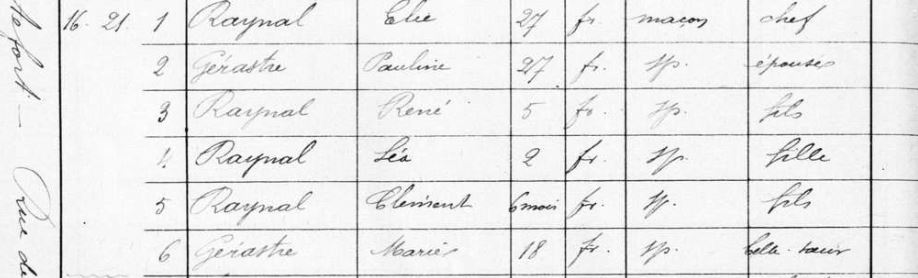 16. 21. 1 Raynal Elie 27 fr. maçon chef
2 Gérastre Pauline 27 fr. sp. épouse
3 Raynal René 5 fr. sp. fils
4 Raynal Léa 2 fr. sp. fille
5 Raynal Clément 6 mois fr. sp. fils
6 Gérastre Marie 18 fr. sp. belle-sœur
Rue de